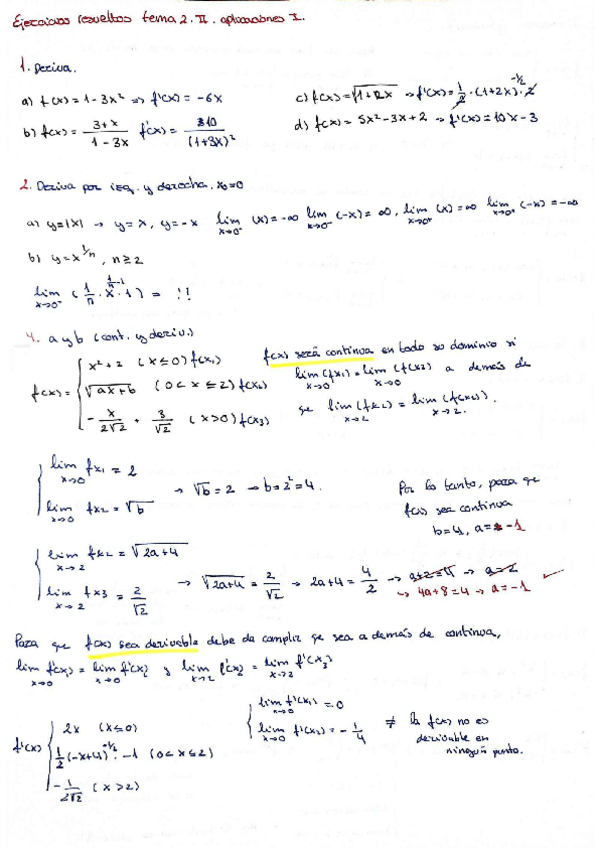 Ejercicios resueltos tema 2. II. aplicaciones I.
1. Deriva.
a) f(x) = 1-3x² => f'(x) = -6x
c) f(x) = √(1+2x) => f'(x) = 1/2 · (1+2x)^(-1/2) · 2
b) f(x) = (3+x)/(1-3x) f'(x) = 10/(1+3x)²
d) f(x) = 5x²-3x+2 → f'(x) = 10x-3
2. Deriva por izq. y derecha, x₀=0
a) y=|x| → y=x, y=-x lim x→0⁻ (x) = -∞ lim x→0⁻ (-x) = ∞, lim x→0⁺ (x) = ∞ lim x→0⁺ (-x) = -∞
b) y = x^(1/n), n≥2
lim x→0⁻ (1/n · x^(1/n -1) · 1) = !!
4. a y b (cont. y deriv.)
f(x) = { x²+2 (x≤0) f(x₁)
√(ax+b) (0<x≤2) f(x₂)
-x/(2√2) + 3/√2 (x>0) f(x₃)
f(x) será continua en todo su dominio si
lim x→0 (fx₁) = lim x→0 (f(x2)) a demás de
qe lim x→2 (fx₂) = lim x→2 (f(x₃)).
{ lim x→0 fx₁ = 2
lim x→0 fx₂ = √b
→ √b = 2 → b = 2² = 4.
Por lo tanto, para qe
f(x) sea continua
b=4, a= -1
{ lim x→2 fx₂ = √(2a+4)
lim x→2 fx₃ = 2/√2
→ √(2a+4) = 2/√2 → 2a+4 = 4/2 → a+2=4 → a=2
↳ 4a+8=4 → a=-1 ✓
Para qe f(x) sea derivable debe da cumplir qe sea a demás de continua,
lim x→0 f'(x₁) = lim x→0 f'(x₂) y lim x→2 f'(x₂) = lim x→2 f'(x₃)
f'(x) { 2x (x≤0)
1/2(-x+4)^(-1/2) · -1 (0<x≤2)
-1/(2√2) (x>2)
{ lim x→0 f'(x₁) = 0
lim x→0 f'(x₂) = -1/4
≠ la f(x) no es
derivable en
ningún punto.